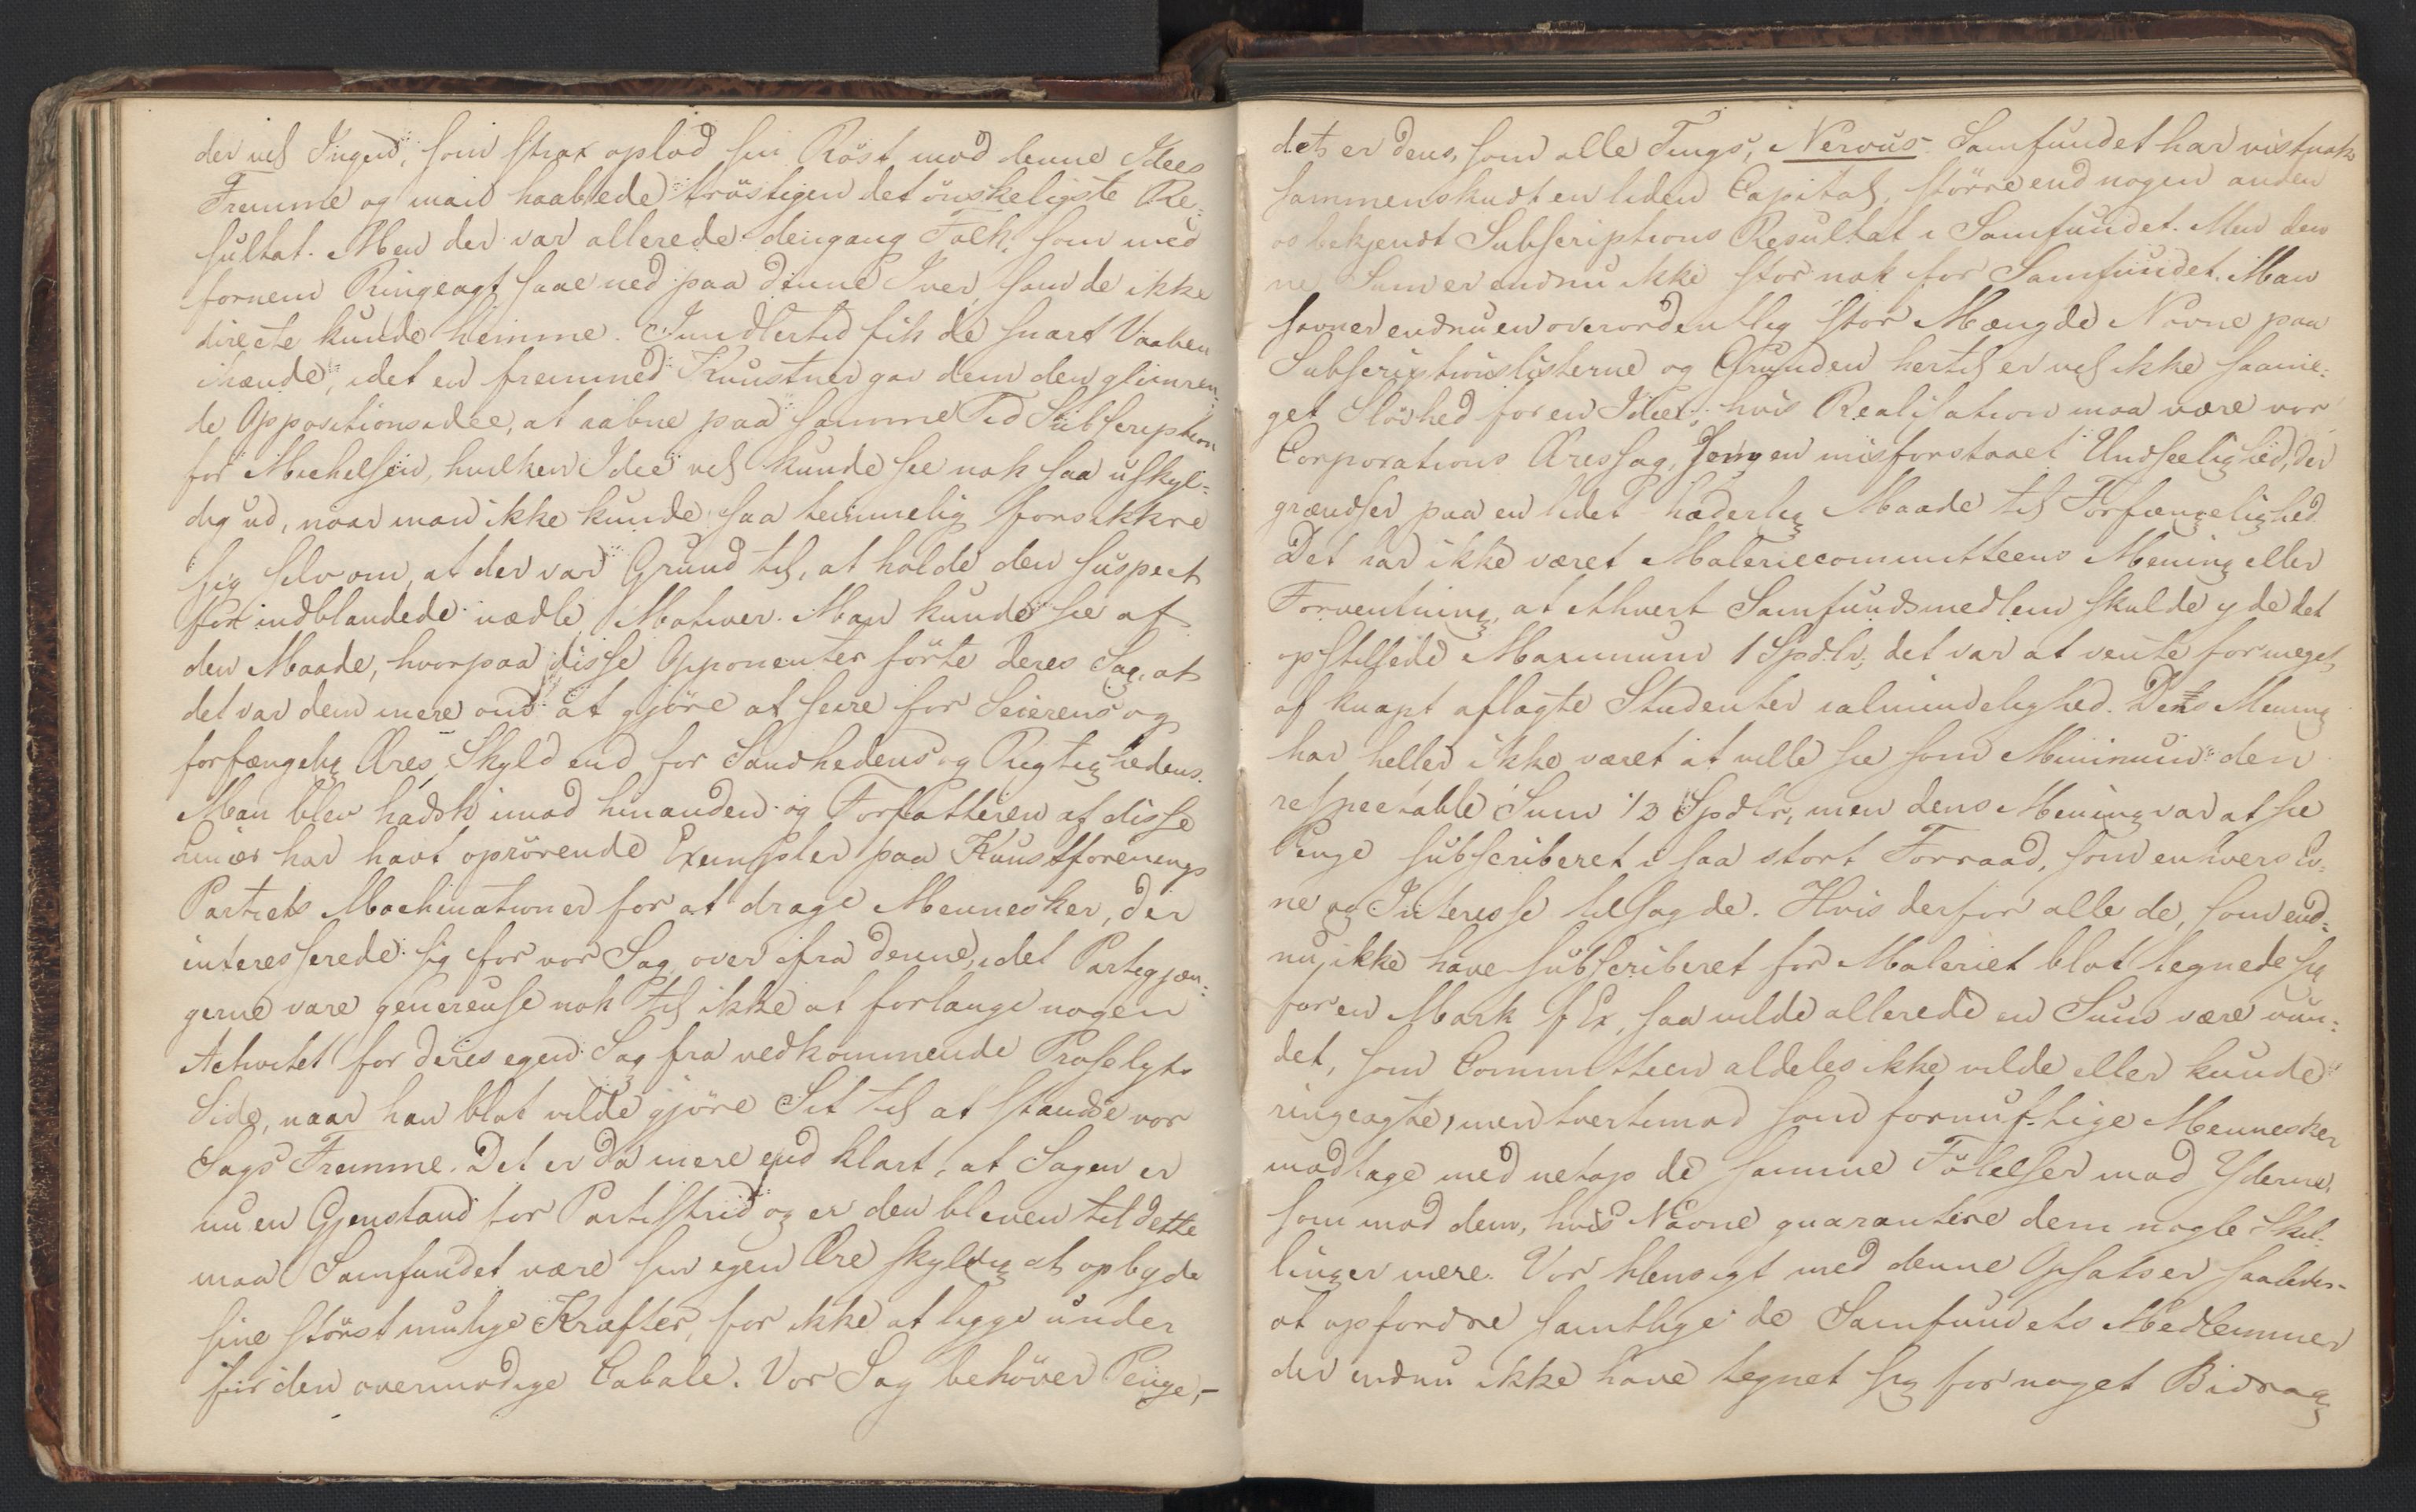 der vel Ingen, som strax oplod sin Röst mod denne Idees
Fremme og man haabede tröstigen det önskeligste Re-
sultat. Men der var allerede dengang Folk, som med
fornem Ringeagt saae ned paa denne Iver, som de ikke
directe kunde hemme. Imidlertid fik de snart Vaaben
ihænde, idet en fremmed Kunstner gav dem den glimren-
de Oppositionsidee, at aabne paa samme Tid Subscription
for Michelsen, hvilken Idee vel kunde see nok saa uskyl-
dig ud, naar man ikke kunde saa temmelig forsikkre
sig selv om, at der var Grund til, at holde den suspect
for indblandede uædle Motiver. Man kunde see af
den Maade, hvorpaa disse Opponenter förte deres Sag, at
det var dem mere om at gjöre at seire for Seierens og
forfængelig Æres Skyld end for Sandhedens og Rigtighedens.
Man blev hadsk imod hinanden og Forfatteren af disse
Linier har havt oprörende Exempler paa Kunstforenings
Partiets Machinationer for at drage Mennesker, der
interesserede sig for vor Sag, over ifra denne, idet Partigjæn-
gerne vare genereuse nok til ikke at forlange nogen
Activitet for deres egen Sag fra vedkommende Proselyts
Side, naar han blot vilde gjöre Sit til at standse vor
Sags Fremme. Det er da mere end klart, at Sagen er
nu en Gjenstand for Partistrid og er den bleven til dette
maa Samfundet være sin egen Ære skyldig at opbyde
sine störst mulige Kræfter, for ikke at ligge under
for den overmodige Cabale. Vor Sag behöver Penge, -
det er dens, som alle Tings, Nervus. Samfundet har vistnok
sammenskudt en liden Capital, större end nogen anden
os bekjendt Subscriptions Resultat i Samfundet. Men den-
ne Sum er endnu ikke stor nok for Samfundet. Man
savner endnu en overordentlig stor Mængde Navne paa
Subscriptionslisterne og Grunden hertil er vel ikke saame-
get Slövhed for en Idee, hvis Realisation maa være vor
Corporations Æressag, som en misforstaaet Undseelighed, der
grændser paa en lidet hæderlig Maade til Forfængelighed.
Det har ikke været Malericommitteens Mening eller
Forventning, at ethvert Samfundsmedlem skulde yde det
opstillede Maximum 1 Spdlr, det var at vente for meget
af knapt aflagte Studenter i almindelighed. Dens Mening
har heller ikke været at ville see som Minimum den
respectable Sum 1/2 Spdlr, men dens Mening var at see
Penge subscriberet i saa stort Forraad, som enhvers Ev-
ne og Interesse tilsagde. Hvis derfor alle de, som end-
nu ikke have subscriberet for Maleriet blot tegnede sig
for en Mark f Ex, saa vilde allerede en Sum være vun-
det, som Committeen aldeles ikke vilde eller kunde
ringeagte, men tvertimod som fornuftige Mennesker
modtage med netop de samme Fölelser mod Yderne,
som mod dem, hvis Navne guarantere dem nogle Skil-
linger mere. Vor Hensigt med denne Opsats er saaledes
at opfordre samtlige de Samfundets Medlemmer
der endnu ikke have tegnet sig for noget Bidrag